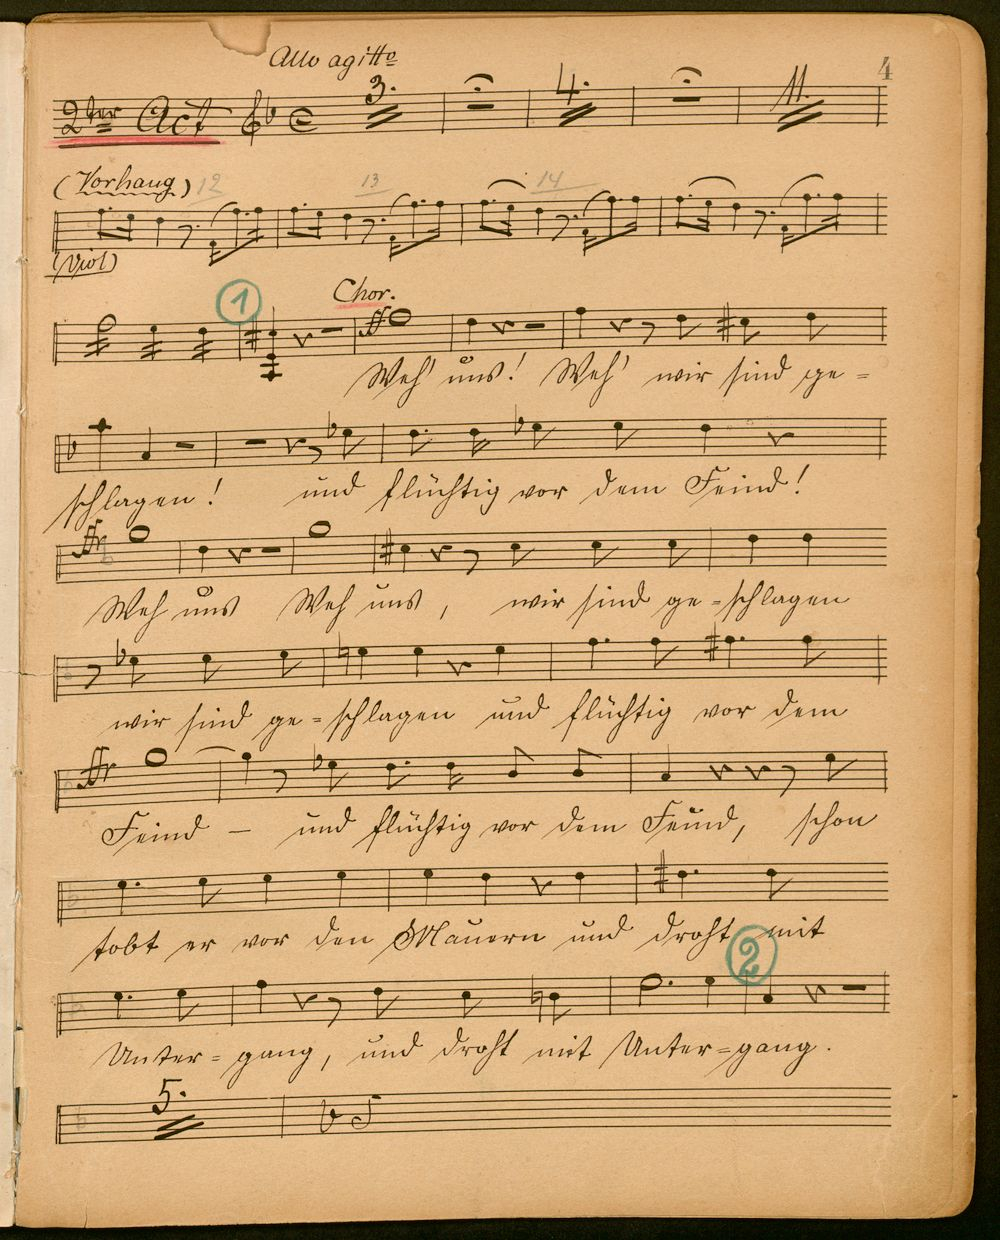 Allo agitto
4
2ter Act 3. 4. 11.
(Vorhang) 12 13 14
(Viol)
1 Chor.
ff
Weh' uns! Weh' wir sind ge=
schlagen! und flüchtig vor dem Feind!
ff
Weh uns Weh uns, wir sind ge=schlagen
wir sind ge=schlagen und flüchtig vor dem
ff
Feind – und flüchtig vor dem Feind, schon
tobt er vor den Mauern und droht mit
2
Unter=gang, und droht mit Unter=gang.
5.
VS